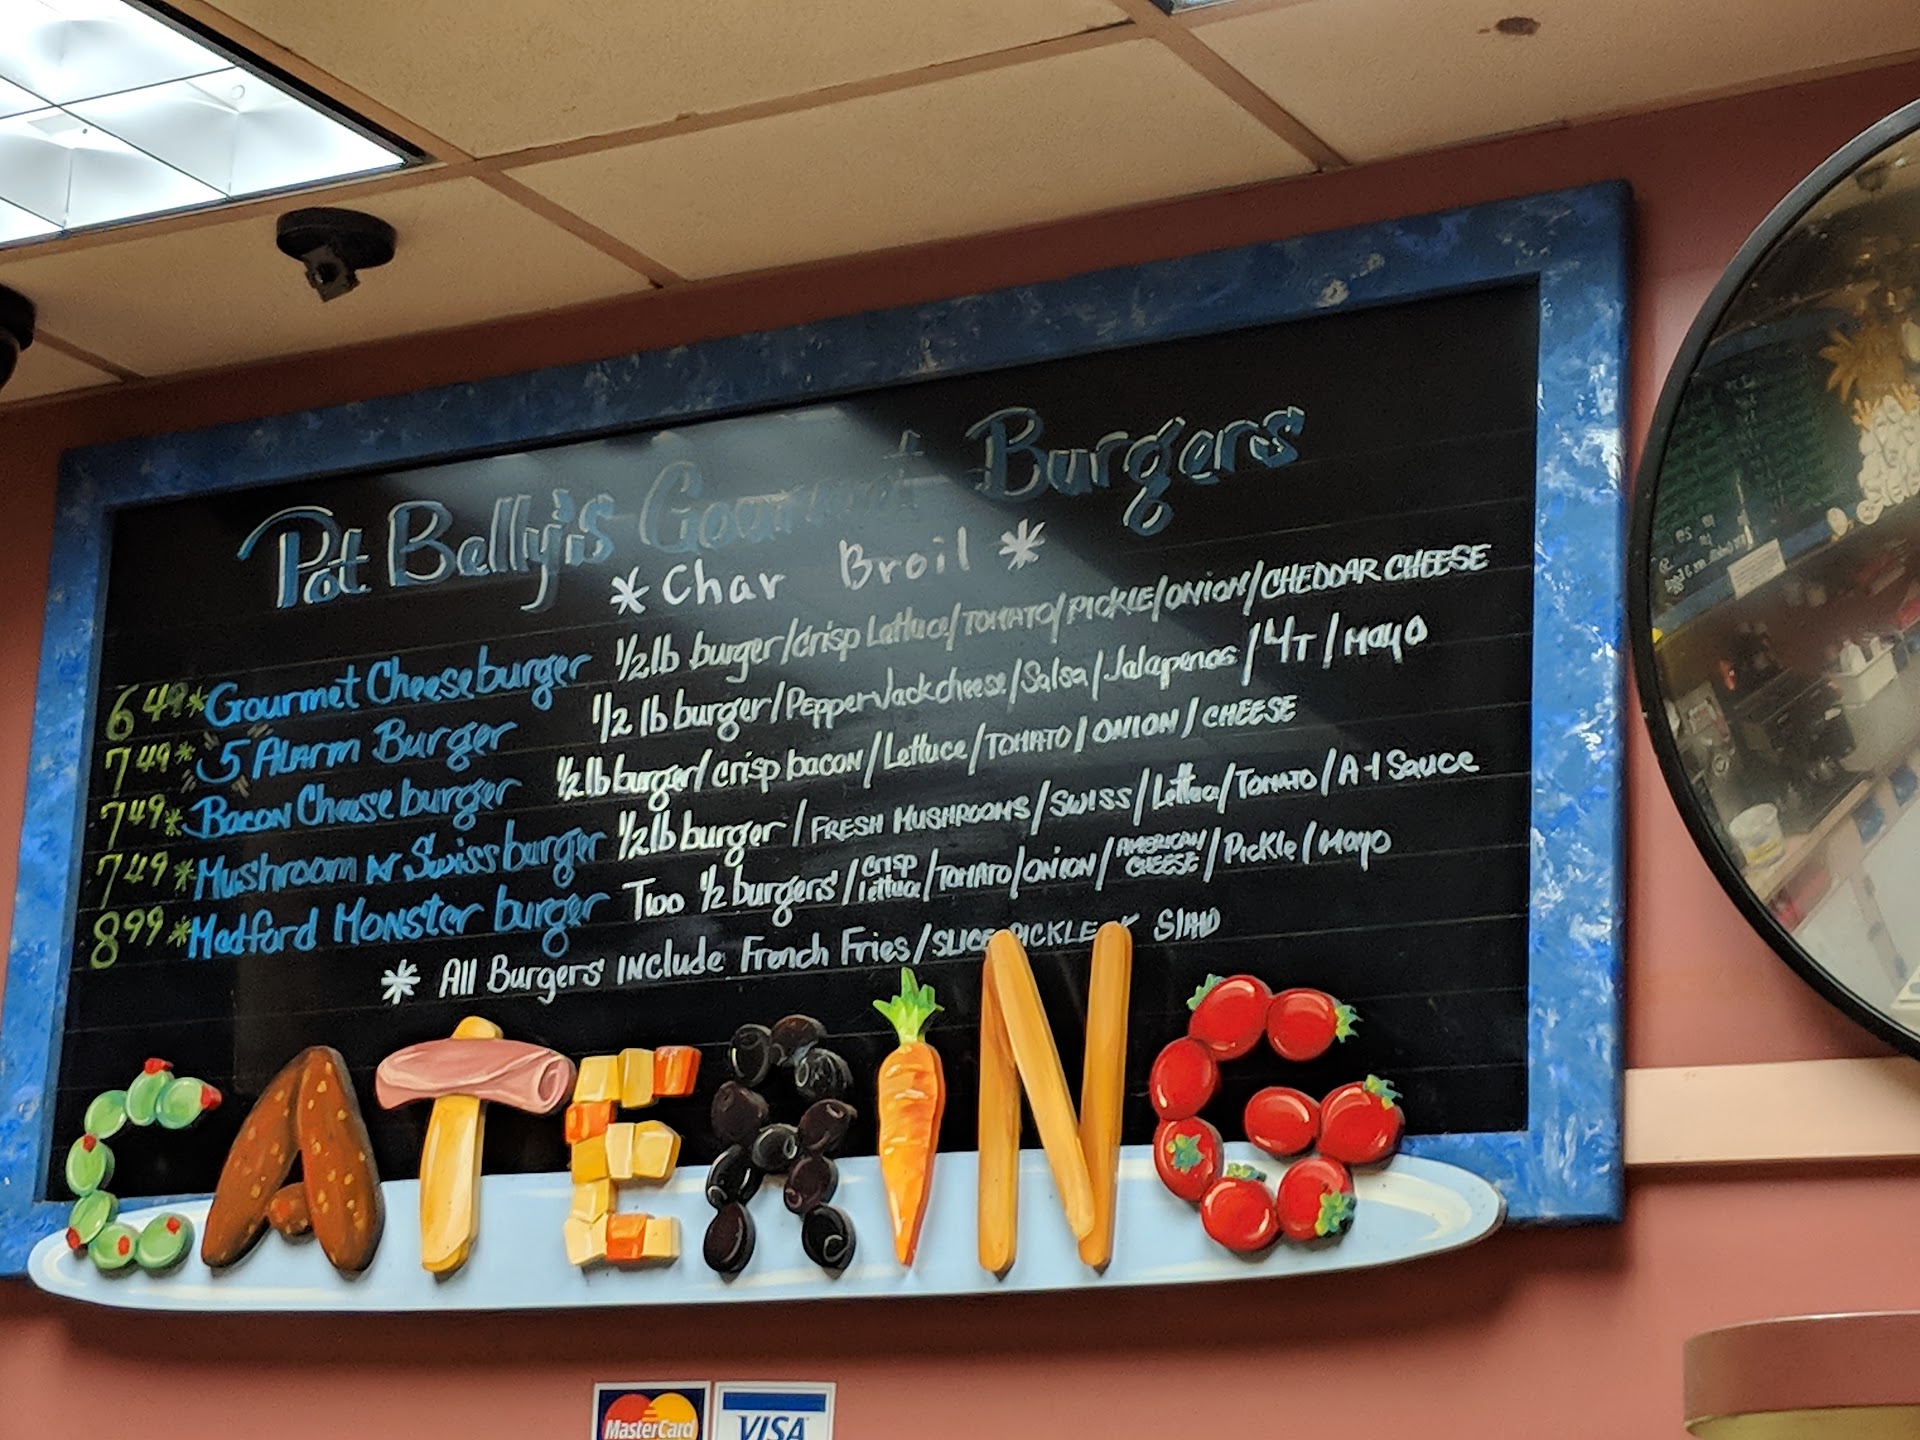 Pot Belly's Gourmet Burgers
* Char Broil *
6 49 * Gourmet Cheeseburger 1/2 lb burger/crisp Lettuce/TOMATO/PICKLE/ONION/CHEDDAR CHEESE
7 49 * "5 Alarm Burger" 1/2 lb burger/Pepper Jack cheese/Salsa/Jalapenos/L+T/Mayo
7 49 * Bacon Cheeseburger 1/2 lb burger/crisp bacon/Lettuce/TOMATO/ONION/CHEESE
7 49 * Mushroom N Swissburger 1/2 lb burger/FRESH MUSHROOMS/SWISS/Lettuce/TOMATO/A-1 Sauce
8 99 * Medford Monster burger Two 1/2 burgers/crisp lettuce/TOMATO/ONION/AMERICAN CHEESE/Pickle/Mayo
* All Burgers Include French Fries/SLICE PICKLE
CATERING
MasterCard
VISA